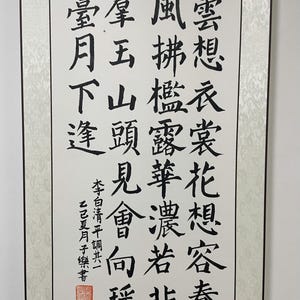 雲想衣裳花想容春
風拂檻露華濃若非
羣玉山頭見會向瑤
臺月下逢
李白清平調其
乙巳夏月子樂書